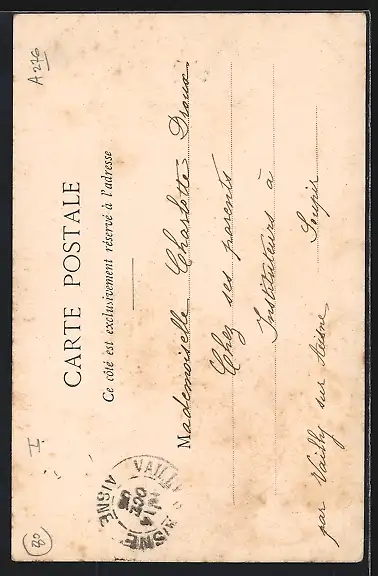 A 276
CARTE POSTALE
Ce côté est exclusivement réservé à l'adresse
Mademoiselle Charlotte Droux
Chez ses parents
Instituteurs à
Soupir
par Vailly sur Aisne
VAILLY S AISNE
14
OCT
AISNE